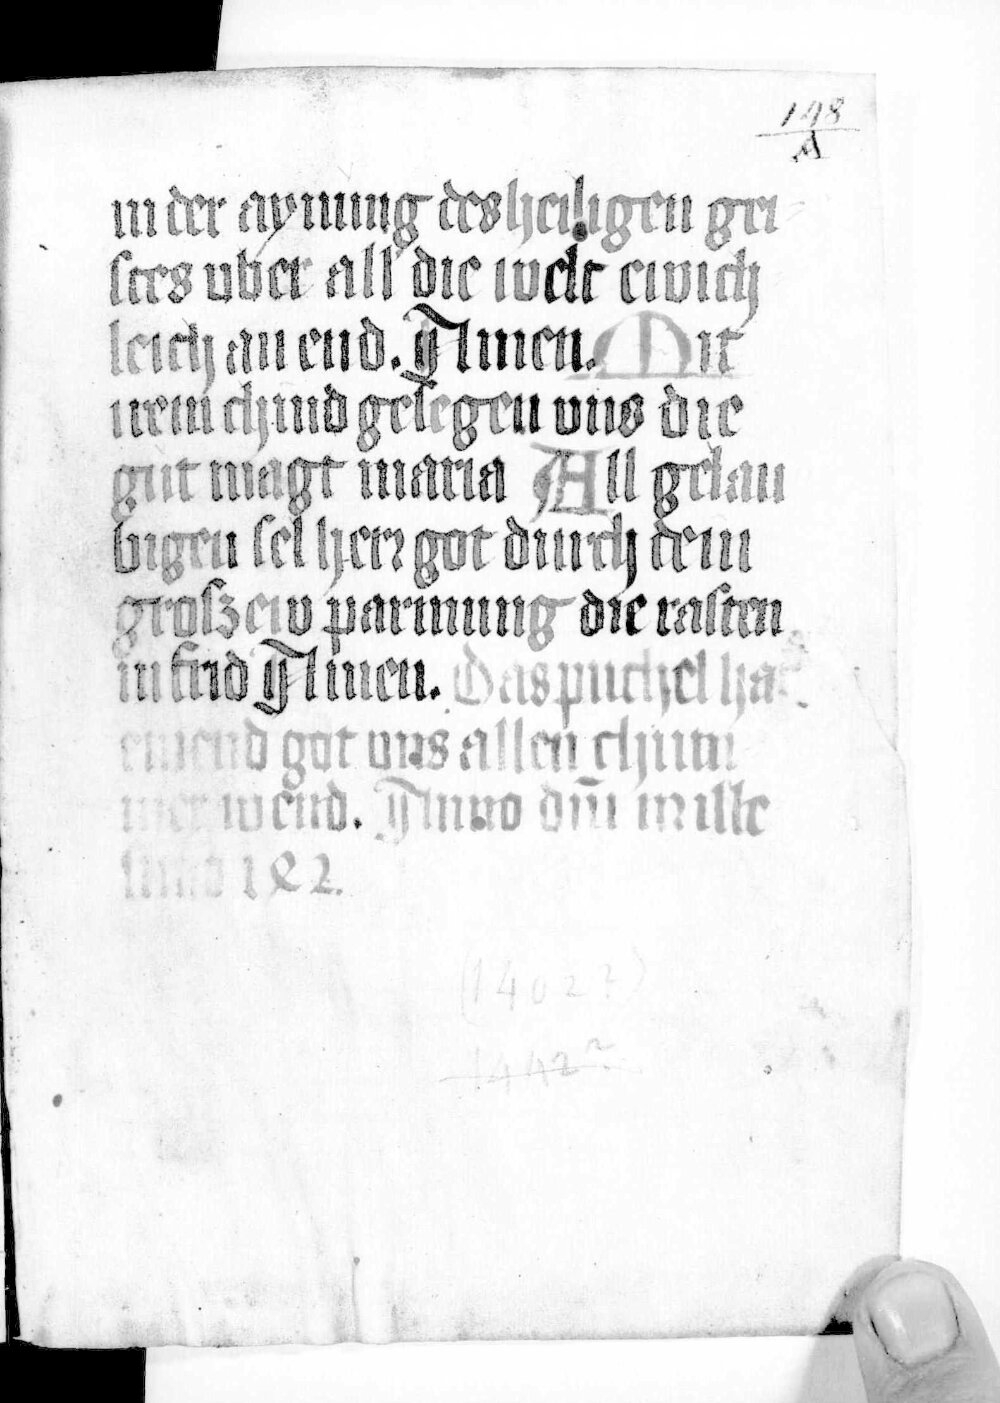 148
A
in der aynung des heiligen gei
stes vber all die welt ewich
leich an end. Amen. Mit
irem chind gesegen vns die
gut magt maria All gelau
bigen sel herr got durch dein
grosz ew parmung die rasten
in frid Amen. Das puchel hat
ein end got vns allen chum
mer wend. Anno dm̄ mille
simo 1 2.
(1402?)
1442?